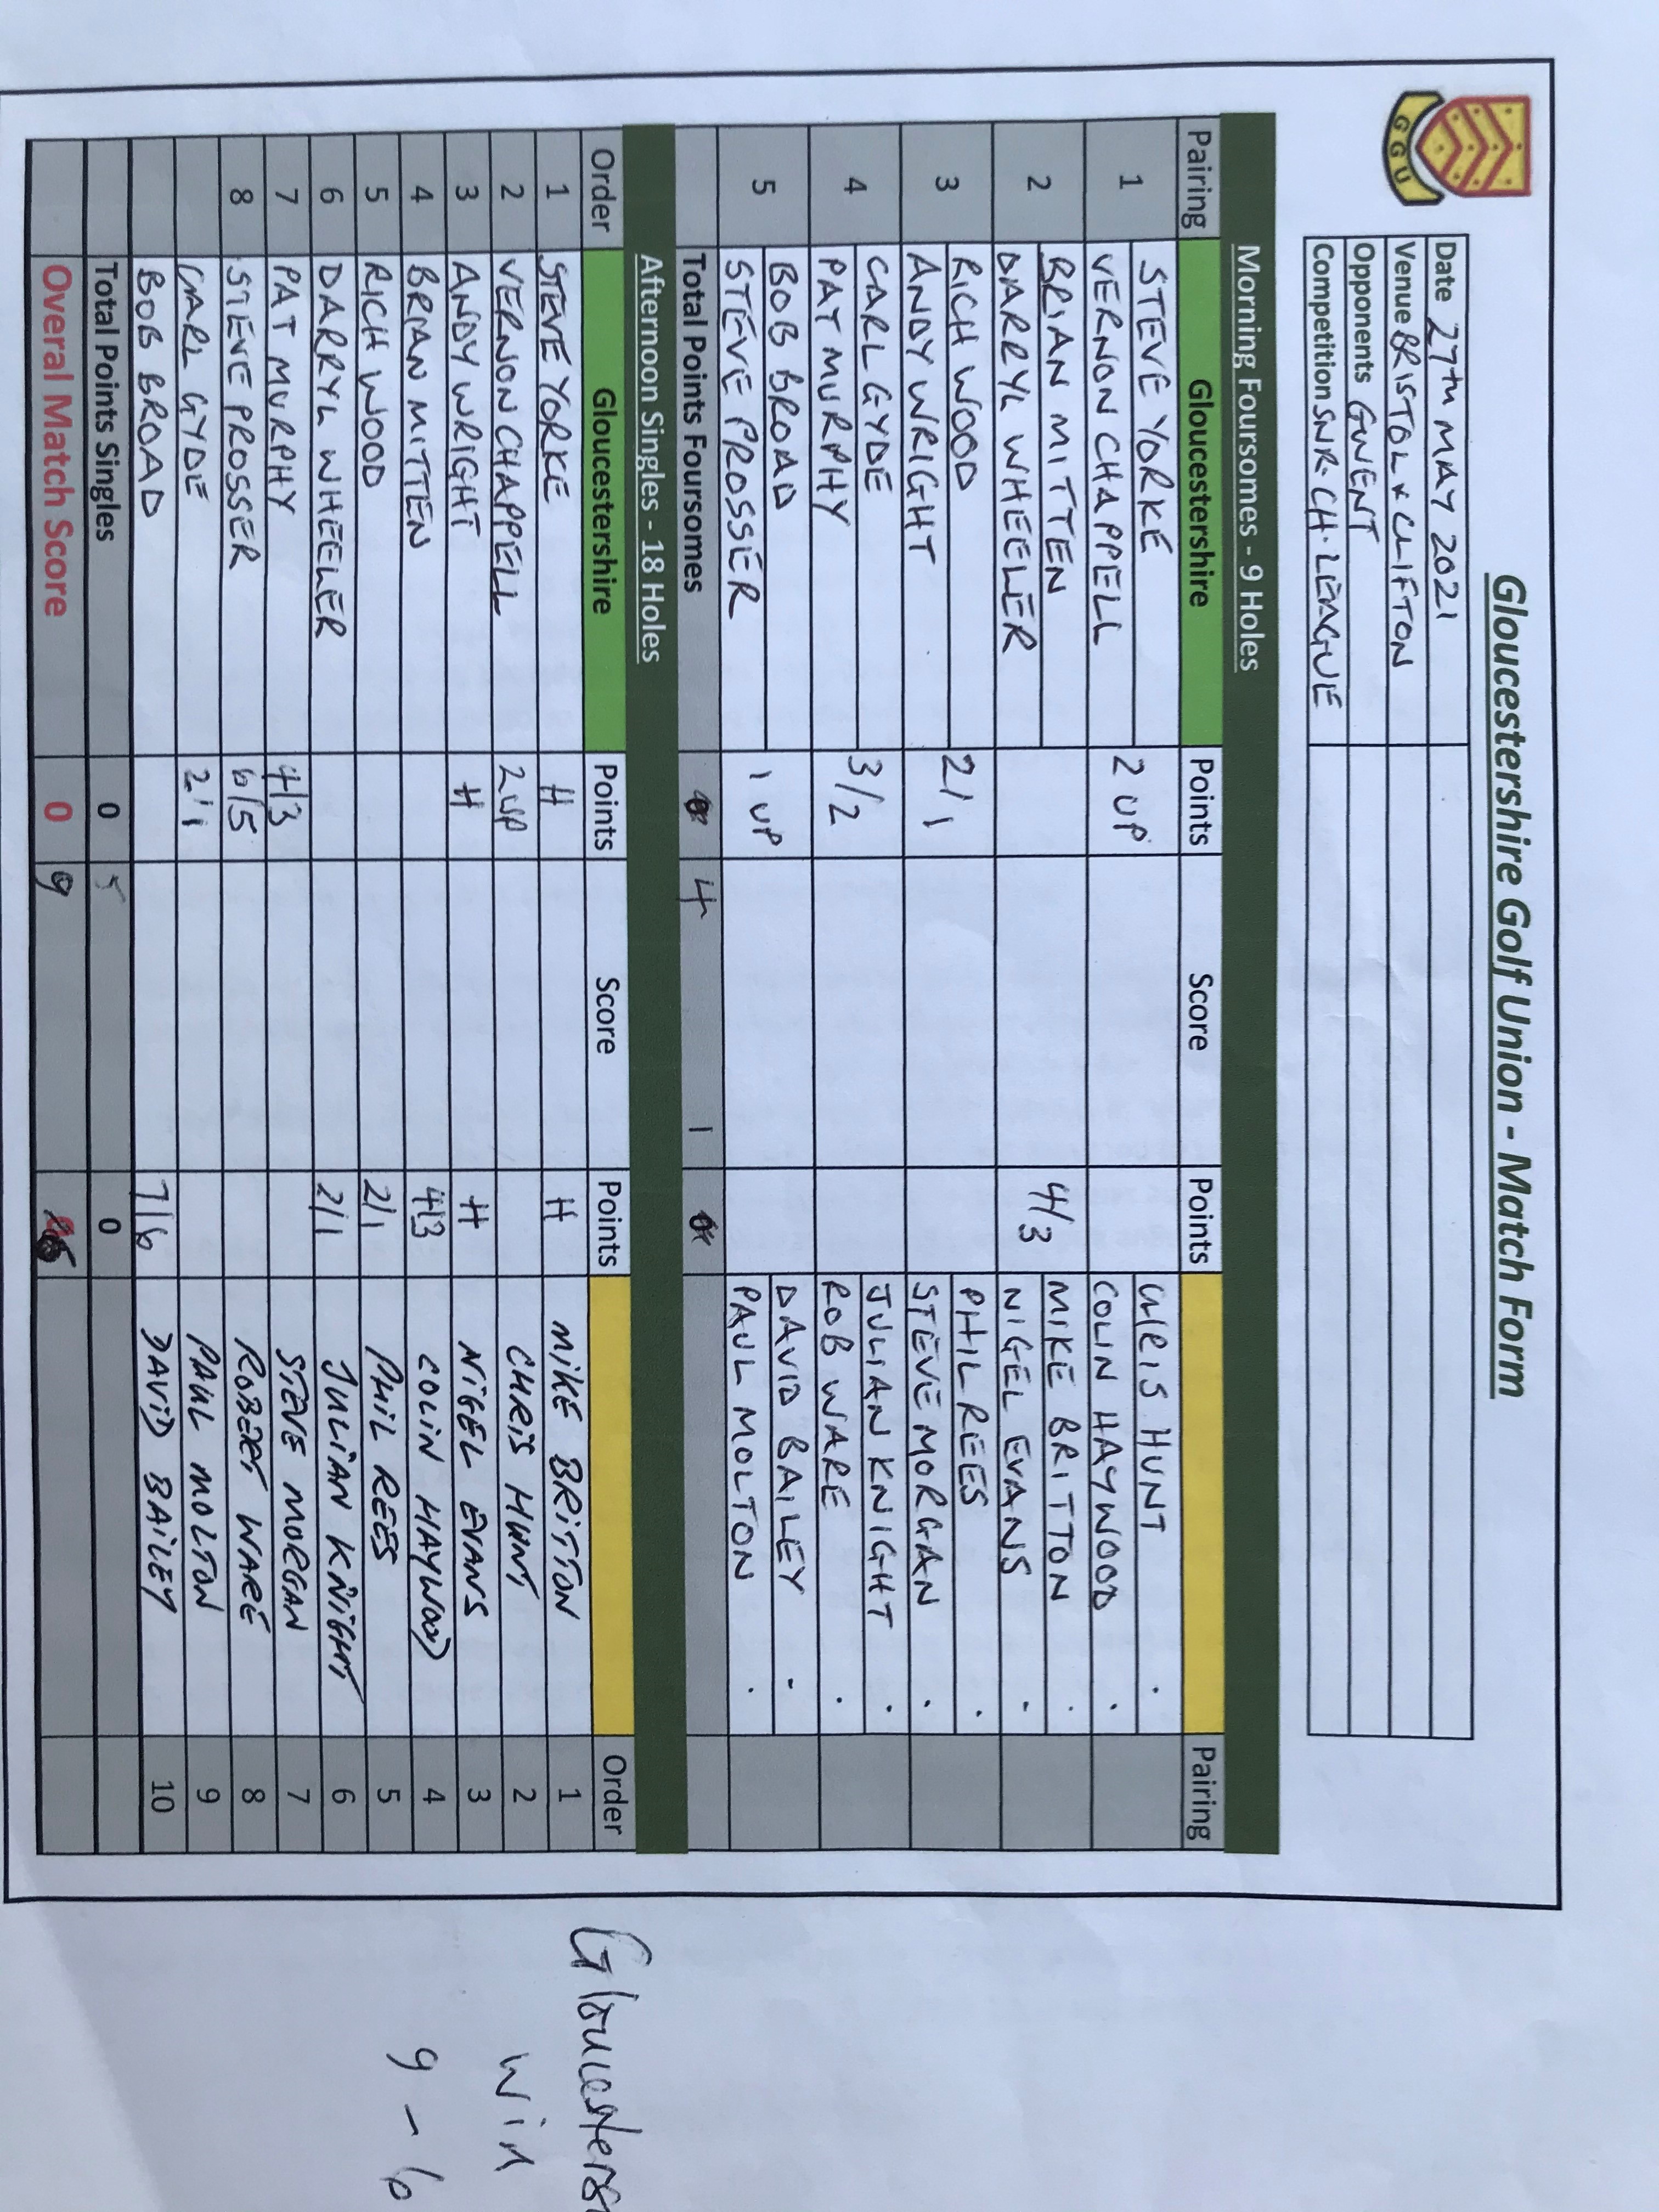 Gloucestershire Golf Union - Match Form
GGU
Date 27TH MAY 2021
Venue BRISTOL & CLIFTON
Opponents GWENT
Competition SNR. CH. LEAGUE
Morning Foursomes - 9 Holes
Pairing Gloucestershire Points Score Points Pairing
1 STEVE YORKE 2 UP CHRIS HUNT
VERNON CHAPPELL COLIN HAYWOOD
2 BRIAN MITTEN 4/3 MIKE BRITTON
DARRYL WHEELER NIGEL EVANS
3 RICH WOOD 2/1 PHIL REES
ANDY WRIGHT STEVE MORGAN
4 CARL GYDE 3/2 JULIAN KNIGHT
PAT MURPHY ROB WARE
5 BOB BROAD 1 UP DAVID BAILEY
STEVE PROSSER PAUL MOLTON
Total Points Foursomes 4 1
Afternoon Singles - 18 Holes
Order Gloucestershire Points Score Points Order
1 STEVE YORKE H H MIKE BRITTON 1
2 VERNON CHAPPELL 2UP CHRIS HUNT 2
3 ANDY WRIGHT H H NIGEL EVANS 3
4 BRIAN MITTEN 4/3 COLIN HAYWOOD 4
5 RICH WOOD 2/1 PHIL REES 5
6 DARRYL WHEELER 2/1 JULIAN KNIGHT 6
7 PAT MURPHY 4/3 STEVE MORGAN 7
8 STEVE PROSSER 6/5 ROBERT WARE 8
CARL GYDE 2/1 PAUL MOLTON 9
BOB BROAD 7/6 DAVID BAILEY 10
Total Points Singles 0 5 0
Overall Match Score 0 9
win
9 - 6